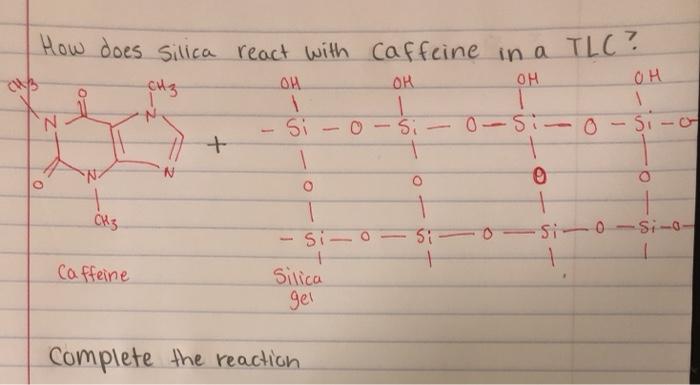 How does silica react with Caffeine in a TLC?
CH3 O CH3 OH OH OH OH
N N + - Si - O - Si - O - Si - O - Si - O
O N N O O O O
CH3 - Si - O - Si - O - Si - O - Si - O -
Caffeine Silica
gel
Complete the reaction